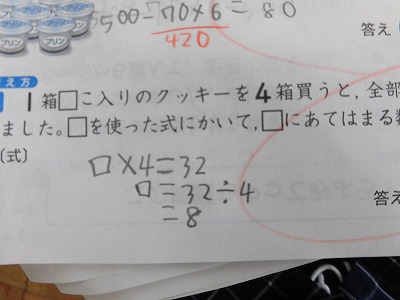 プリン プリン プリン
500-770×6=80
420
答え
え方
1箱□こ入りのクッキーを4箱買うと,全部
ました。□を使った式にかいて,□にあてはまる数
(式)
□×4=32
□=32÷4
=8
答え